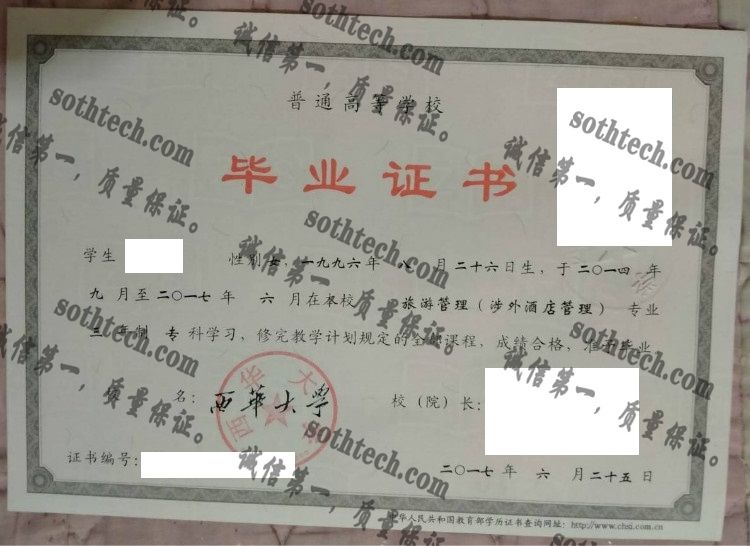 普通高等学校
毕业证书
学生 性别女，一九九六年 八 月二十六日生，于二〇一四 年
九 月至二〇一七年 六 月在本校 旅游管理（涉外酒店管理） 专业
三 年制 专 科学习，修完教学计划规定的全部课程，成绩合格，准予毕业
校 名： 西华大学 校（院）长：
西华大学
证书编号：
二〇一七年 六 月二十五日
中华人民共和国教育部学历证书查询网址：http://www.chsi.com.cn
sothtech.com
诚信第一，质量保证。
sothtech.com
诚信第一，质量保证。
sothtech.com
诚信第一，质量保证。
sothtech.com
诚信第一，质量保证。
sothtech.com
诚信第一，质量保证。
sothtech.com
诚信第一，质量保证。
sothtech.com
诚信第一，质量保证。
sothtech.com
诚信第一，质量保证。